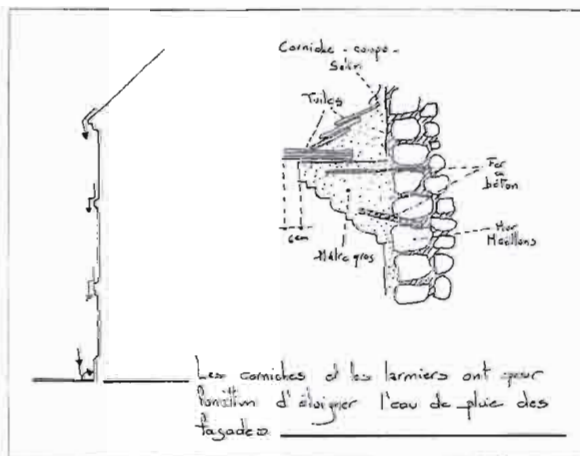 Corniche - compo-
Tuiles
Fer
à
béton
Mur
Moellons
6cm
Les corniches et les larmiers ont pour
d'éloigner l'eau de pluie des
façades